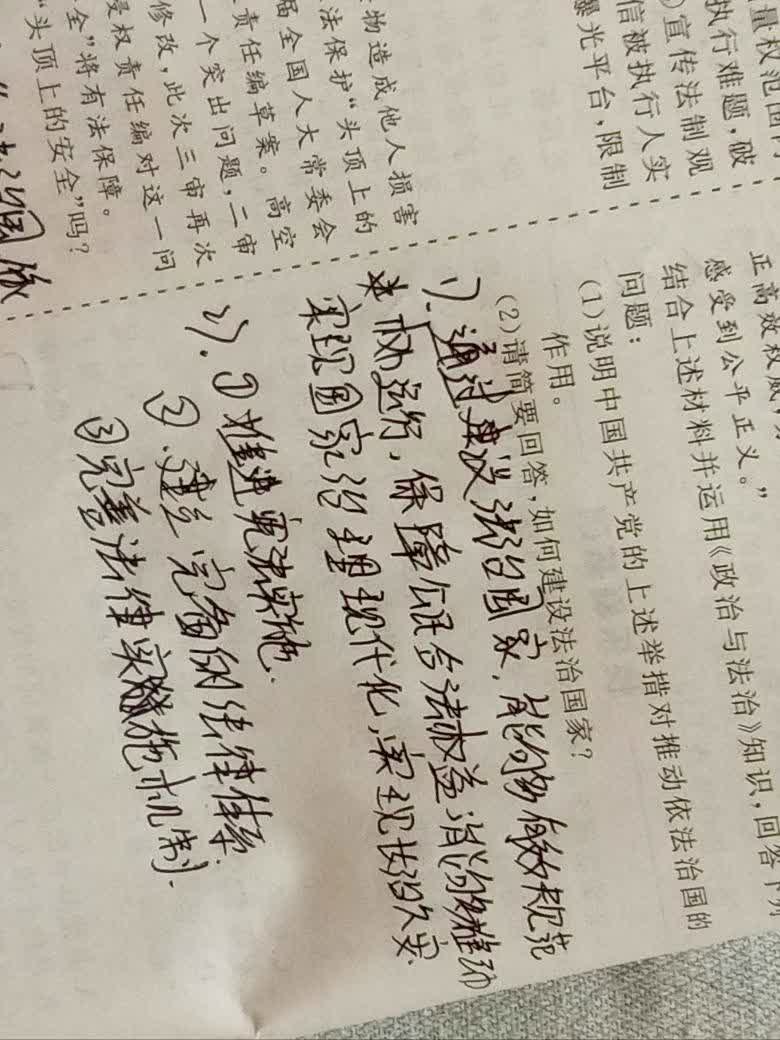 量权范围
执行难题,破
宣传法制观
信被执行人实
曝光平台,限制
物造成他人损害
法保护“头顶上的
届全国人大常委会
责任编草案。高空
一个突出问题,二审
修改,此次三审再次
侵权责任编对这一问
全”将有法保障。
“头顶上的安全”吗?
法治国家
正高效权威
感受到公平正义。”
结合上述材料并运用《政治与法治》知识,回答下列
问题:
(1)说明中国共产党的上述举措对推动依法治国的
作用。
(2)请简要回答,如何建设法治国家?
1).通过建设法治国家,能够有效规范
权力运行,保障公民合法权益,能够推动
实现国家治理现代化,实现长治久安
2).①推进宪法实施.
②.建立完备的法律体系
③完善法律实施机制.